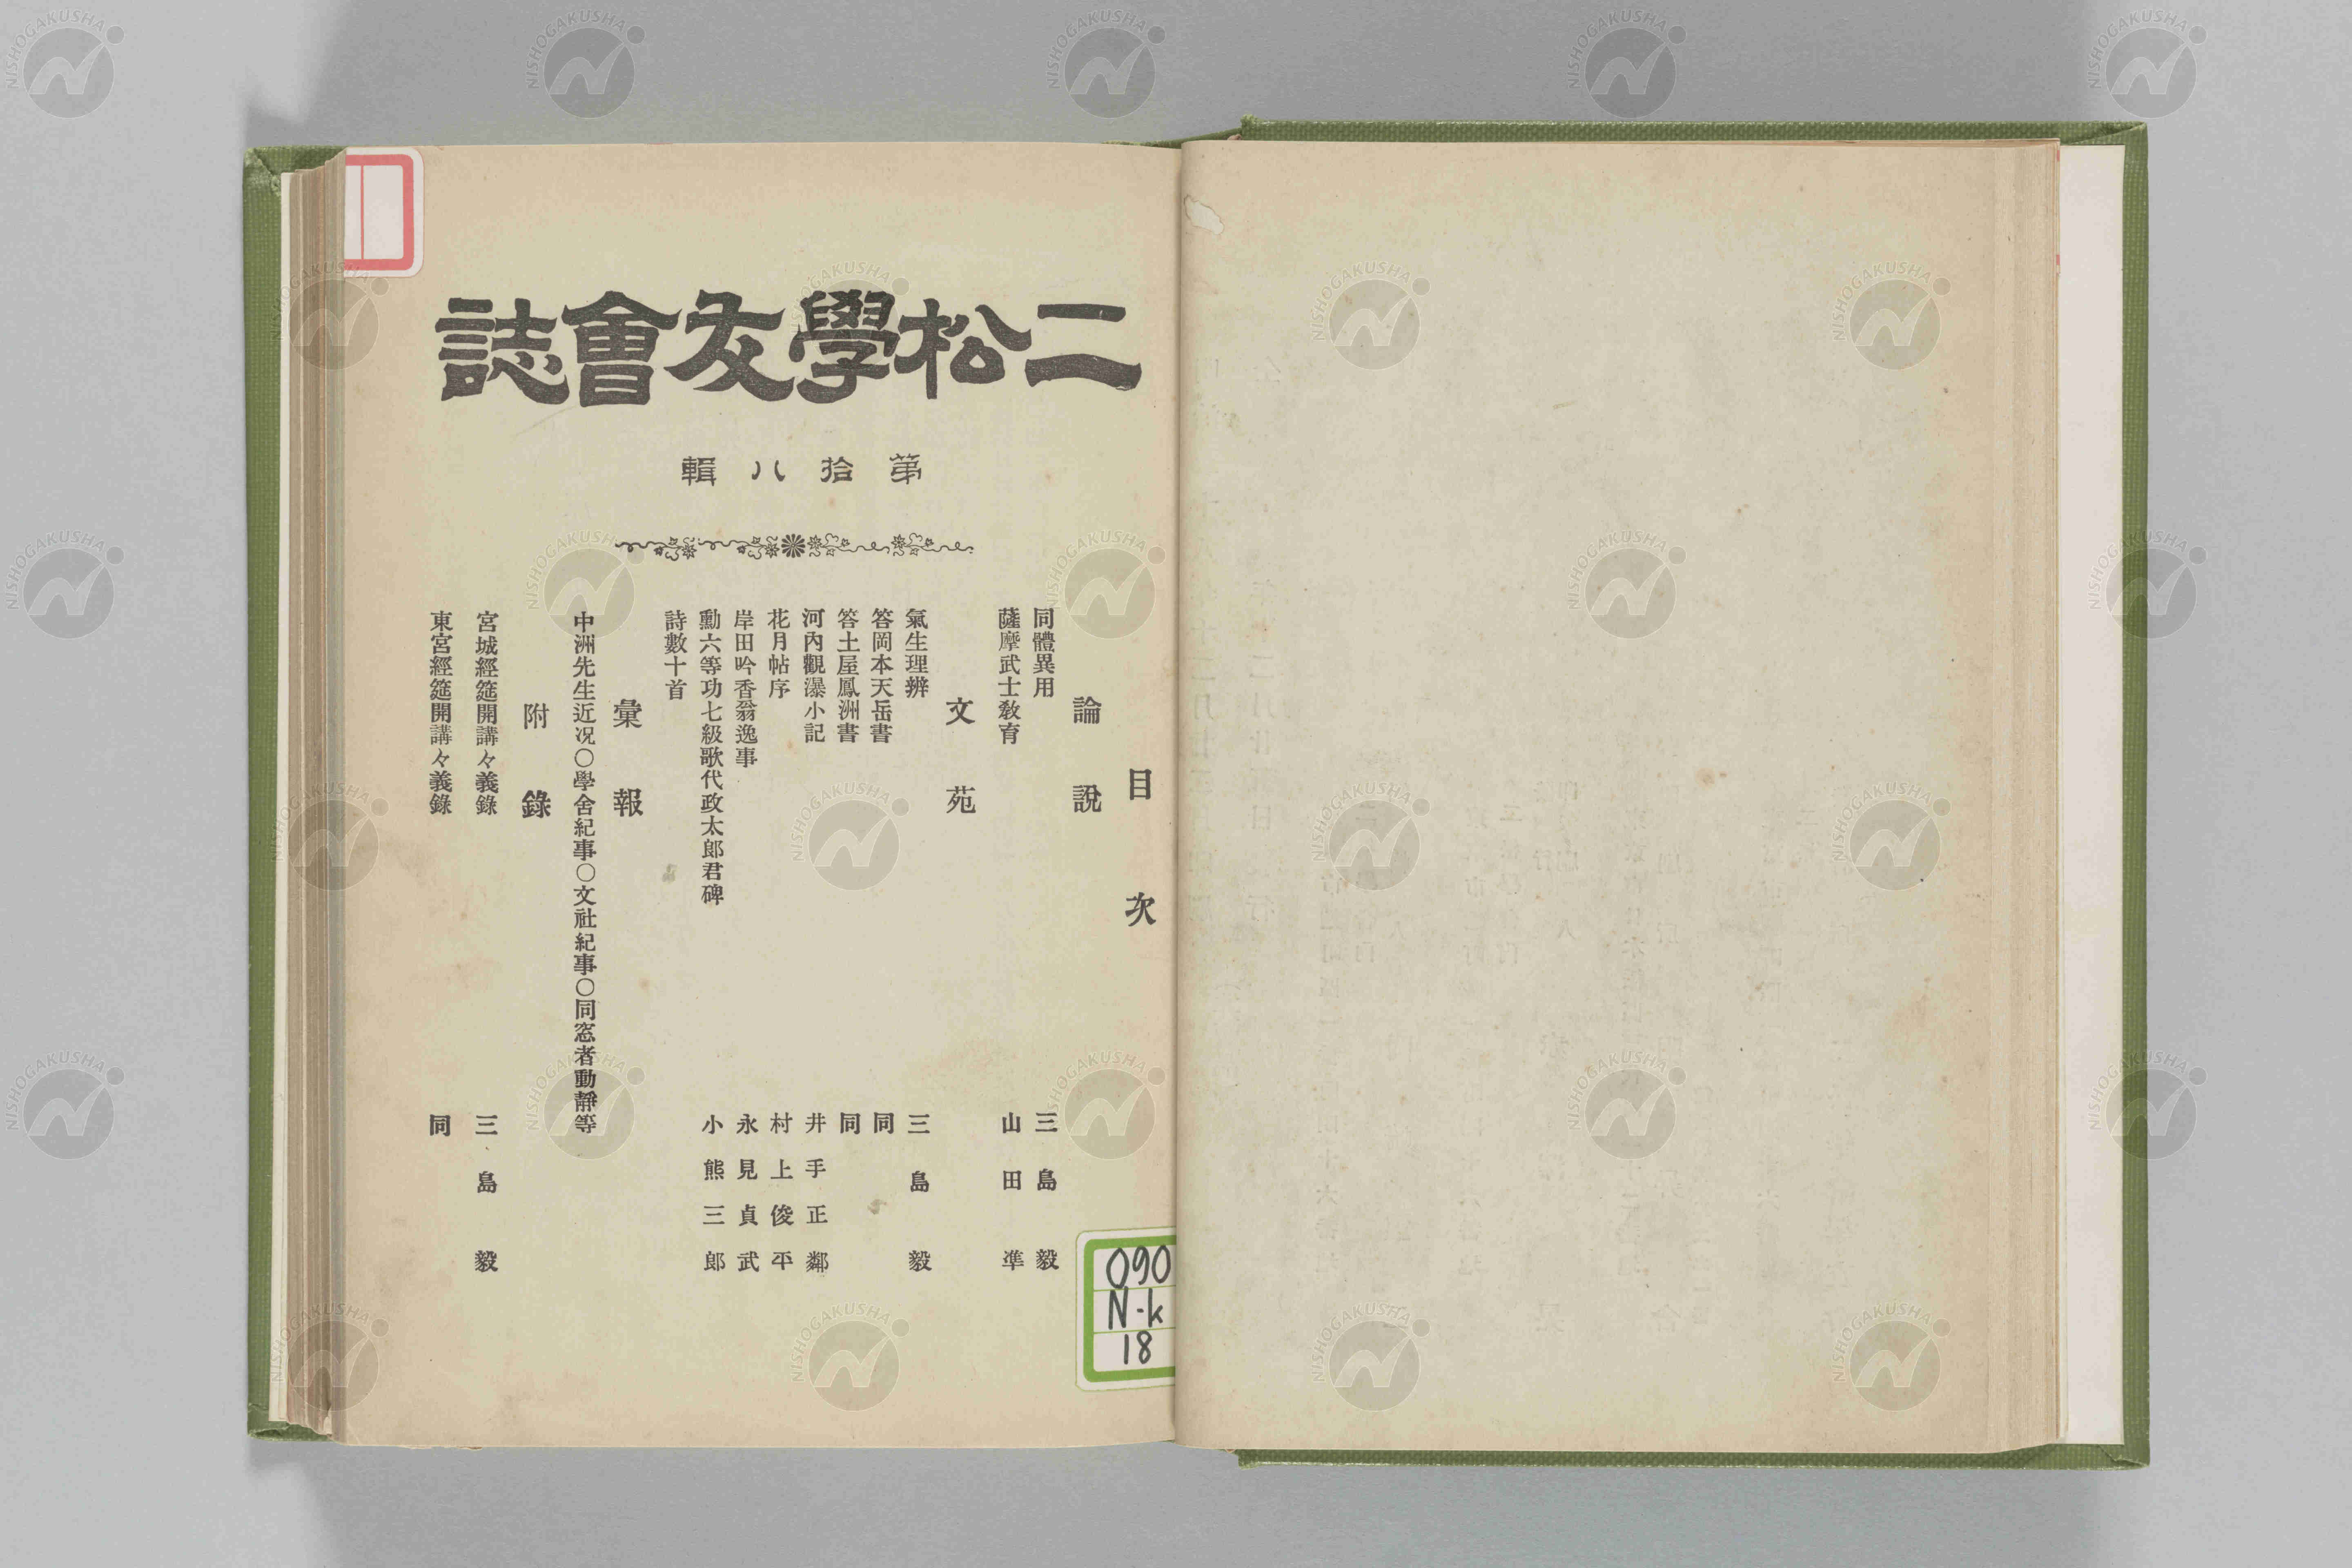 二松學友會誌
第拾八輯
目次
論說
同體異用 三島毅
薩摩武士教育 山田準
文苑
氣生理辨 三島毅
答岡本天岳書 同
答土屋鳳洲書 同
河內觀瀑小記 井手正鄰
花月帖序 村上俊平
岸田吟香翁逸事 永見貞武
勳六等功七級歌代政太郎君碑 小熊三郎
詩數十首
彙報
中洲先生近况○學舍紀事○文社紀事○同窓者動靜等
附錄
宮城經筵開講々義錄 三島毅
東宮經筵開講々義錄 同
090
N-k
18
NISHOGAKUSHA